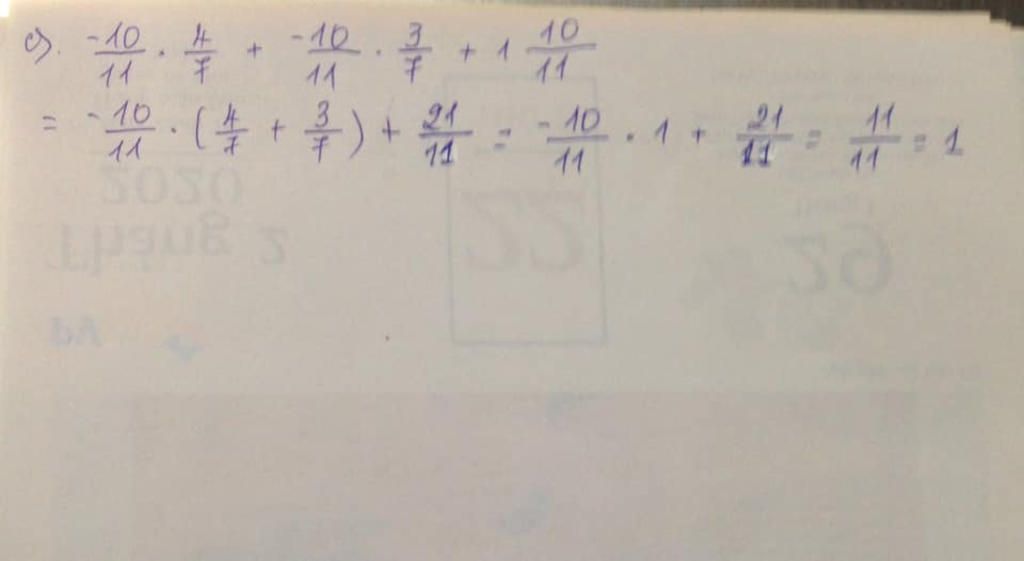 c). -10/11 . 4/7 + -10/11 . 3/7 + 1 10/11
= -10/11 . (4/7 + 3/7) + 21/11 = -10/11 . 1 + 21/11 = 11/11 = 1
2020
Tháng 2
22
29